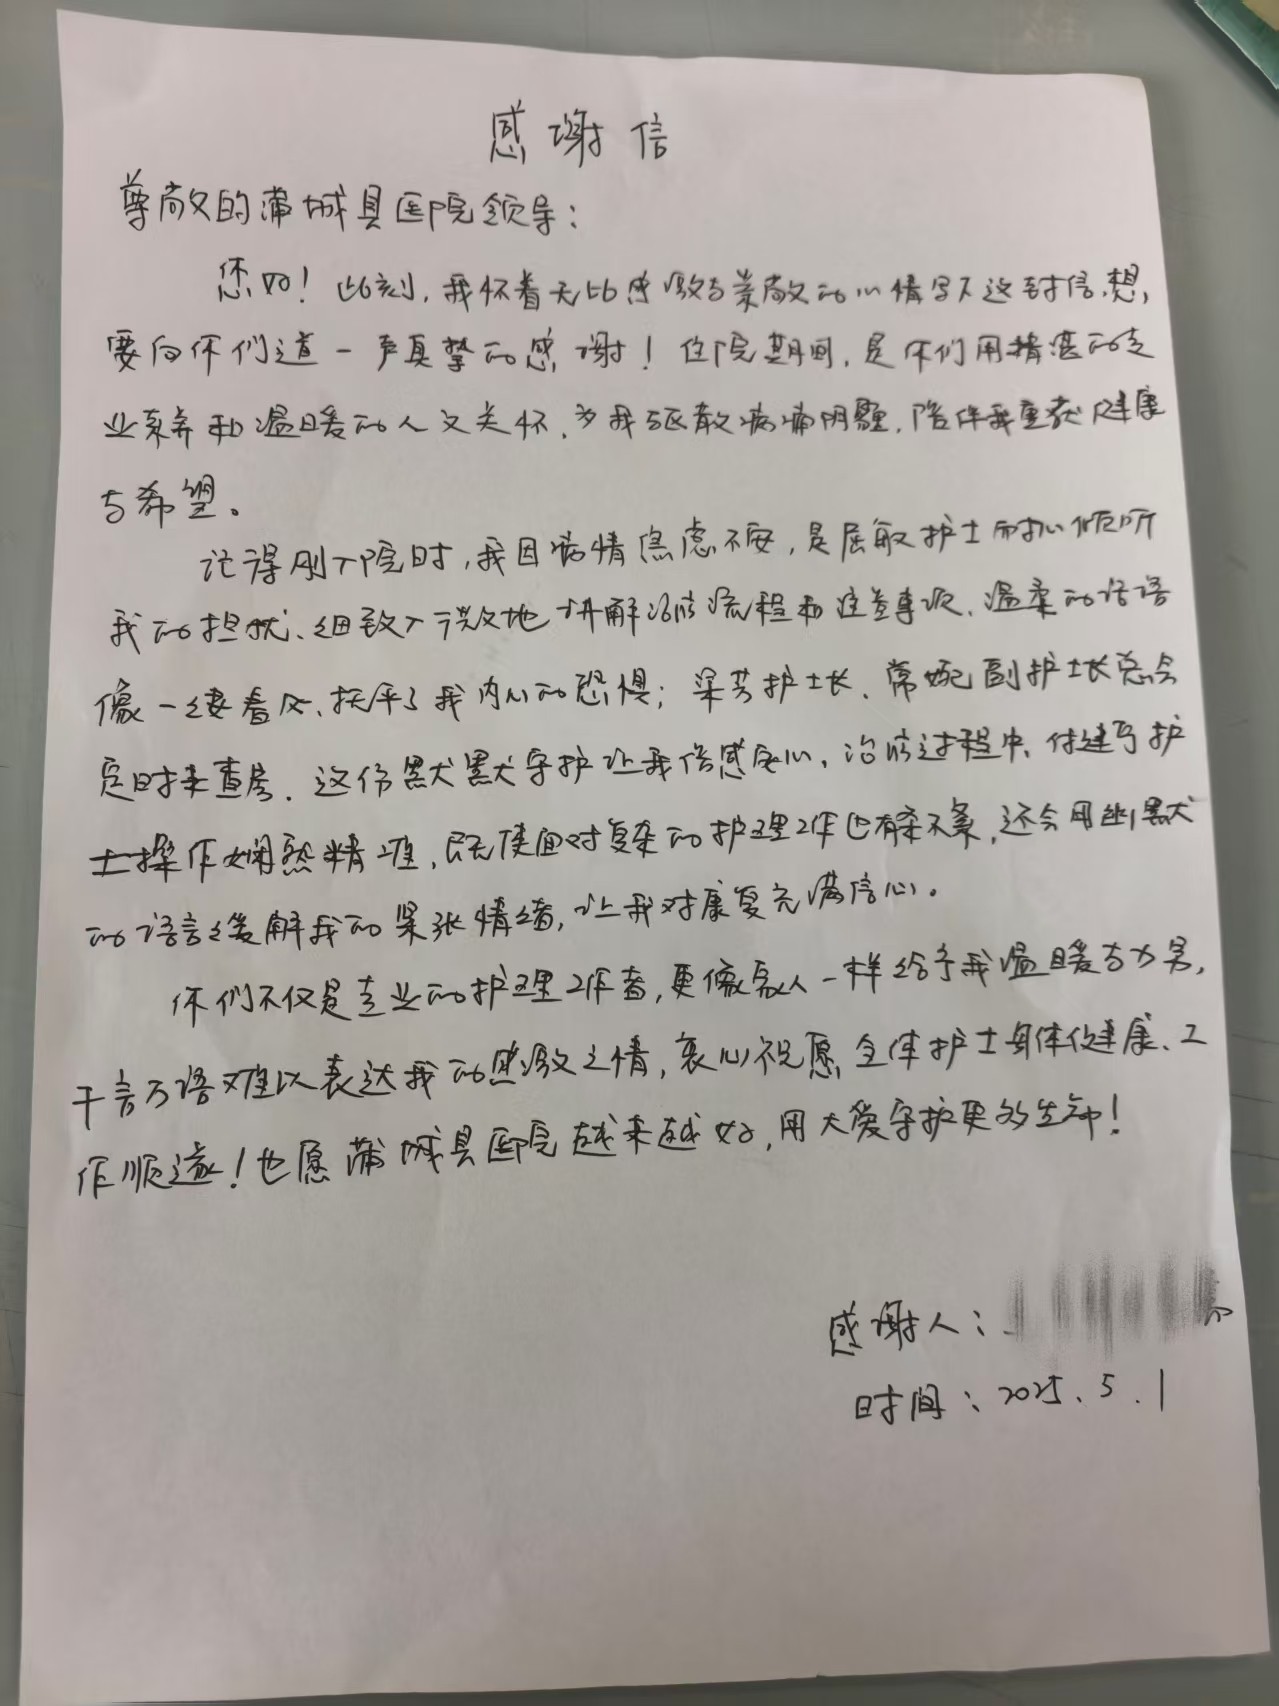 感谢信
尊敬的蒲城县医院领导：
您好！此刻，我怀着无比感激与崇敬的心情写下这封信，想
要向你们道一声真挚的感谢！住院期间，是你们用精湛的专
业素养和温暖的人文关怀，为我驱散病痛阴霾，陪伴我重获健康
与希望。
记得刚入院时，我因病情焦虑不安，是屈敏护士耐心倾听
我的担忧、细致入微地讲解治疗流程和注意事项、温柔的话语
像一缕春风、抚平了我内心的恐惧；梁芳护士长、常婉副护士长总会
定时来查房、这份默默守护让我倍感安心，治疗过程中、付建丐护
士操作娴熟精准，既使面对复杂的护理工作也有条不紊，还会用幽默
的语言缓解我的紧张情绪，让我对康复充满信心。
你们不仅是专业的护理工作者，更像家人一样给予我温暖与力量，
千言万语难以表达我的感激之情，衷心祝愿全体护士身体健康、工
作顺遂！也愿蒲城县医院越来越好，用大爱守护更多生命！
感谢人：
时间：2025.5.1